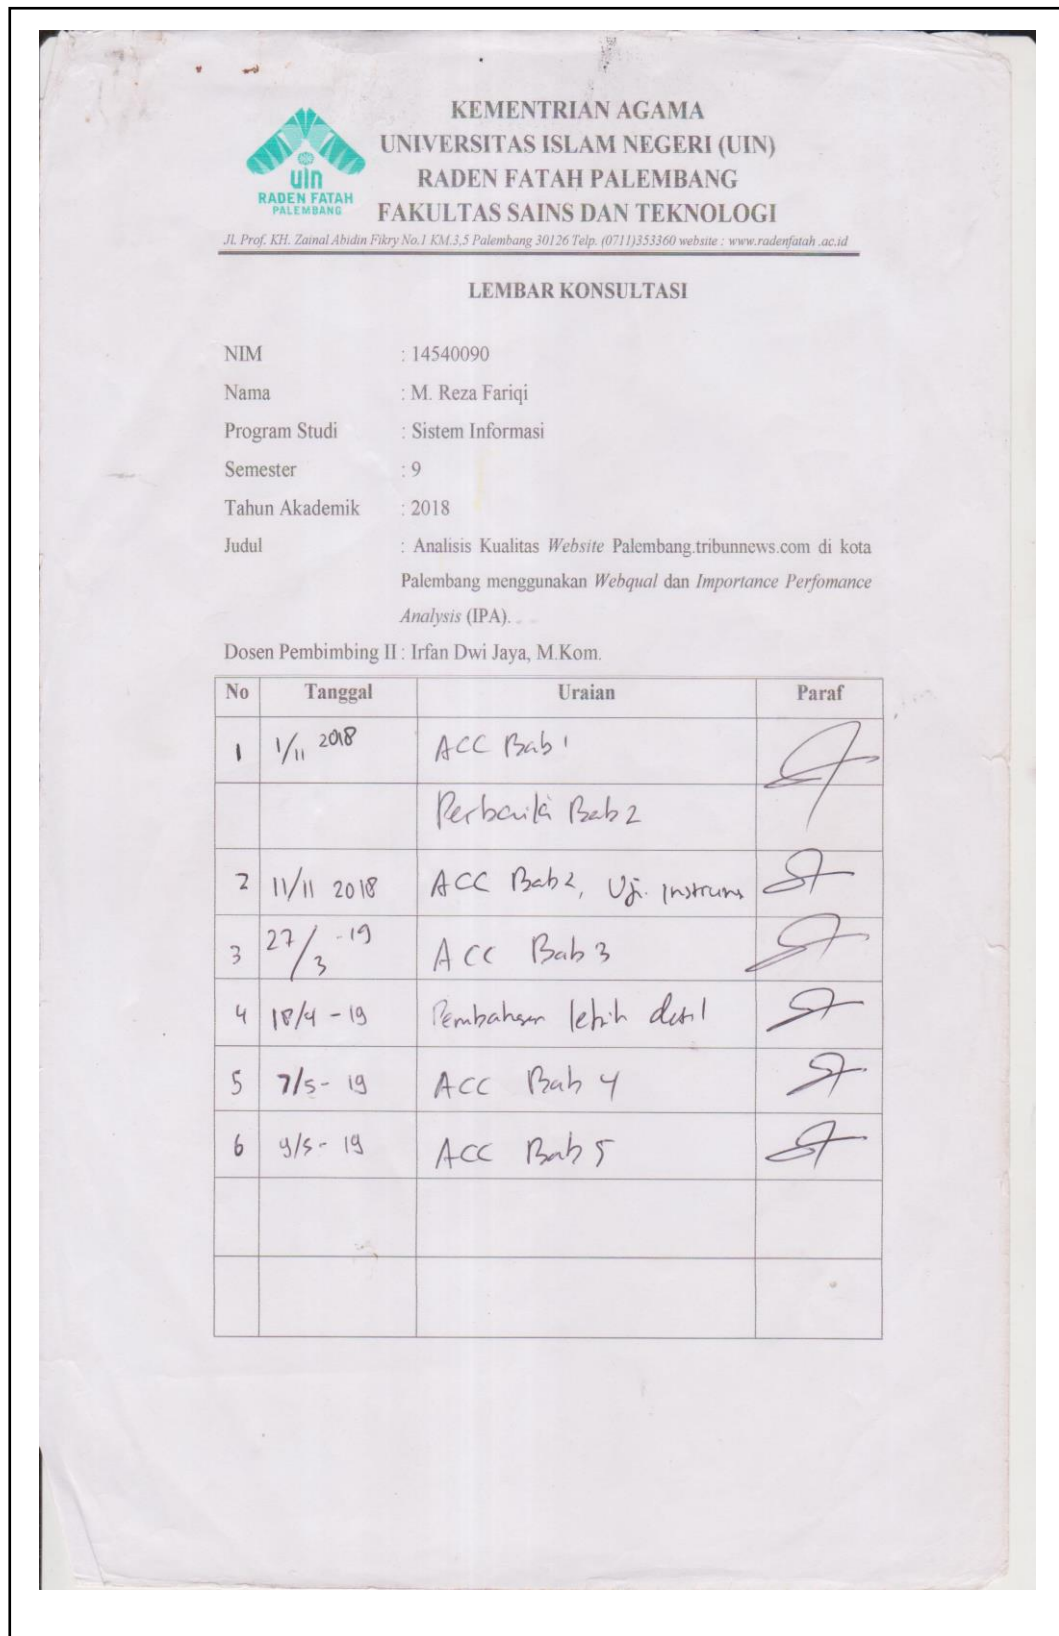 KEMENTRIAN AGAMA
UNIVERSITAS ISLAM NEGERI (UIN)
RADEN FATAH PALEMBANG
FAKULTAS SAINS DAN TEKNOLOGI
uin
RADEN FATAH
PALEMBANG
Jl. Prof. KH. Zainal Abidin Fikry No.1 KM.3,5 Palembang 30126 Telp. (0711)353360 website : www.radenfatah .ac.id
LEMBAR KONSULTASI
NIM : 14540090
Nama : M. Reza Fariqi
Program Studi : Sistem Informasi
Semester : 9
Tahun Akademik : 2018
Judul : Analisis Kualitas Website Palembang.tribunnews.com di kota
Palembang menggunakan Webqual dan Importance Perfomance
Analysis (IPA).
Dosen Pembimbing II : Irfan Dwi Jaya, M.Kom.
No Tanggal Uraian Paraf
1 1/11 2018 ACC Bab 1
Perbaiki Bab 2
2 11/11 2018 ACC Bab 2, Uji
3 27/3 -19 ACC Bab 3
4 18/4 - 19 lebih
5 7/5 - 19 ACC Bab 4
6 9/5 - 19 ACC Bab 5